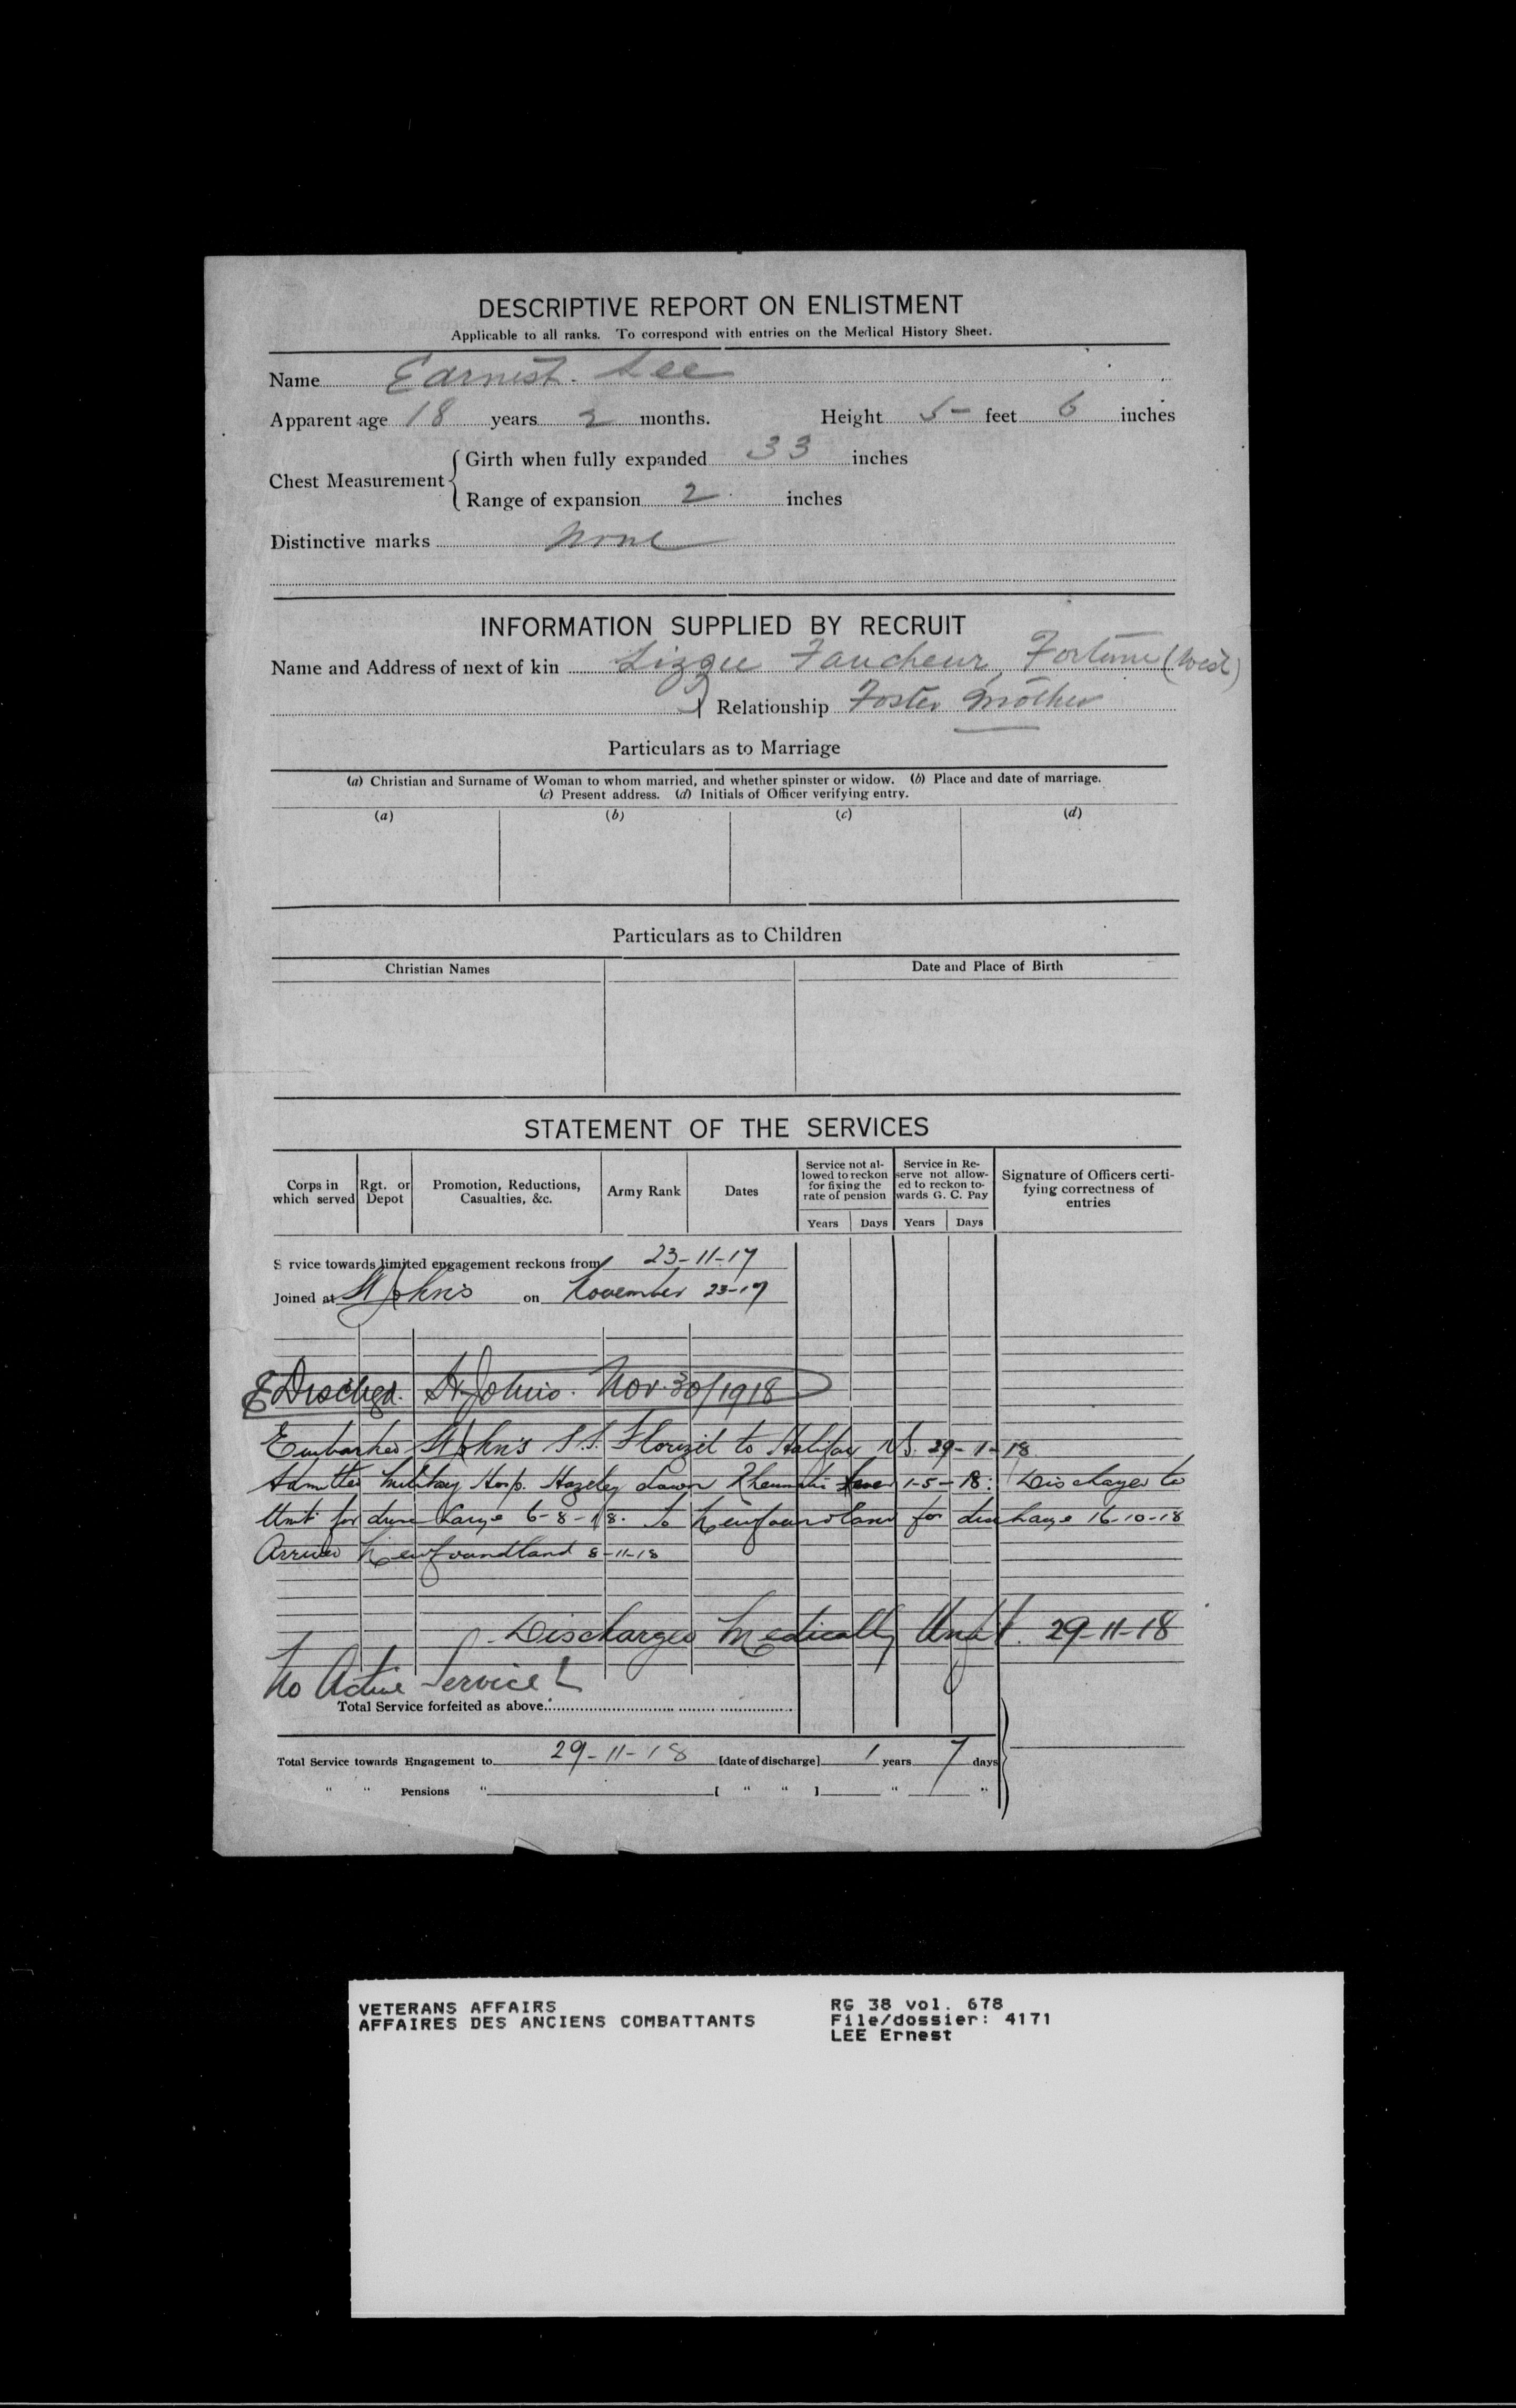 DESCRIPTIVE REPORT ON ENLISTMENT
Applicable to all ranks. To correspond with entries on the Medical History Sheet.
Name Earnest. Lee
Apparent age 18 years 2 months. Height 5 feet 6 inches
Chest Measurement { Girth when fully expanded 33 inches
Range of expansion 2 inches
Distinctive marks None
INFORMATION SUPPLIED BY RECRUIT
Name and Address of next of kin Lizzie Faucheur, Fortune (West)
Relationship Foster Mother
Particulars as to Marriage
(a) Christian and Surname of Woman to whom married, and whether spinster or widow. (b) Place and date of marriage.
(c) Present address. (d) Initials of Officer verifying entry.
(a) (b) (c) (d)
Particulars as to Children
Christian Names Date and Place of Birth
STATEMENT OF THE SERVICES
Corps in which served Rgt. or Depot Promotion, Reductions, Casualties, &c. Army Rank Dates Service not allowed to reckon for fixing the rate of pension Service in Reserve not allowed to reckon towards G. C. Pay Signature of Officers certifying correctness of entries
Years Days Years Days
S rvice towards limited engagement reckons from 23-11-17
Joined at St Johns on November 23-17
Dischgd. St. Johns. Nov. 30/1918
Embarked St John's S.S. Florizel to Halifax N.S. 29-1-18
Admitted Military Hosp. Hazeley Down Rheumatic fever 1-5-18: Discharged to
Unit for discharge 6-8-18. To Newfoundland for discharge 16-10-18
Arrived Newfoundland 8-11-18
Discharged Medically Unfit. 29-11-18
No Active Service
Total Service forfeited as above:
Total Service towards Engagement to 29-11-18 [date of discharge] 1 years 7 days
" " Pensions " [ " " ] " "
VETERANS AFFAIRS RG 38 vol. 678
AFFAIRES DES ANCIENS COMBATTANTS File/dossier: 4171
LEE Ernest